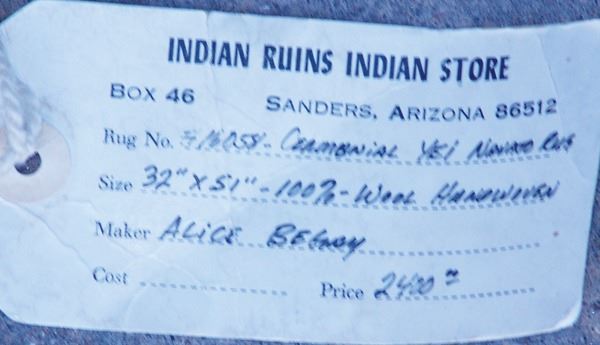 INDIAN RUINS INDIAN STORE
BOX 46 SANDERS, ARIZONA 86512
Rug No. #16058 - Ceremonial YEI Navajo Rug
Size 32" X 51" - 100% - Wool Handwoven
Maker ALICE BEGAY
Cost Price 2400